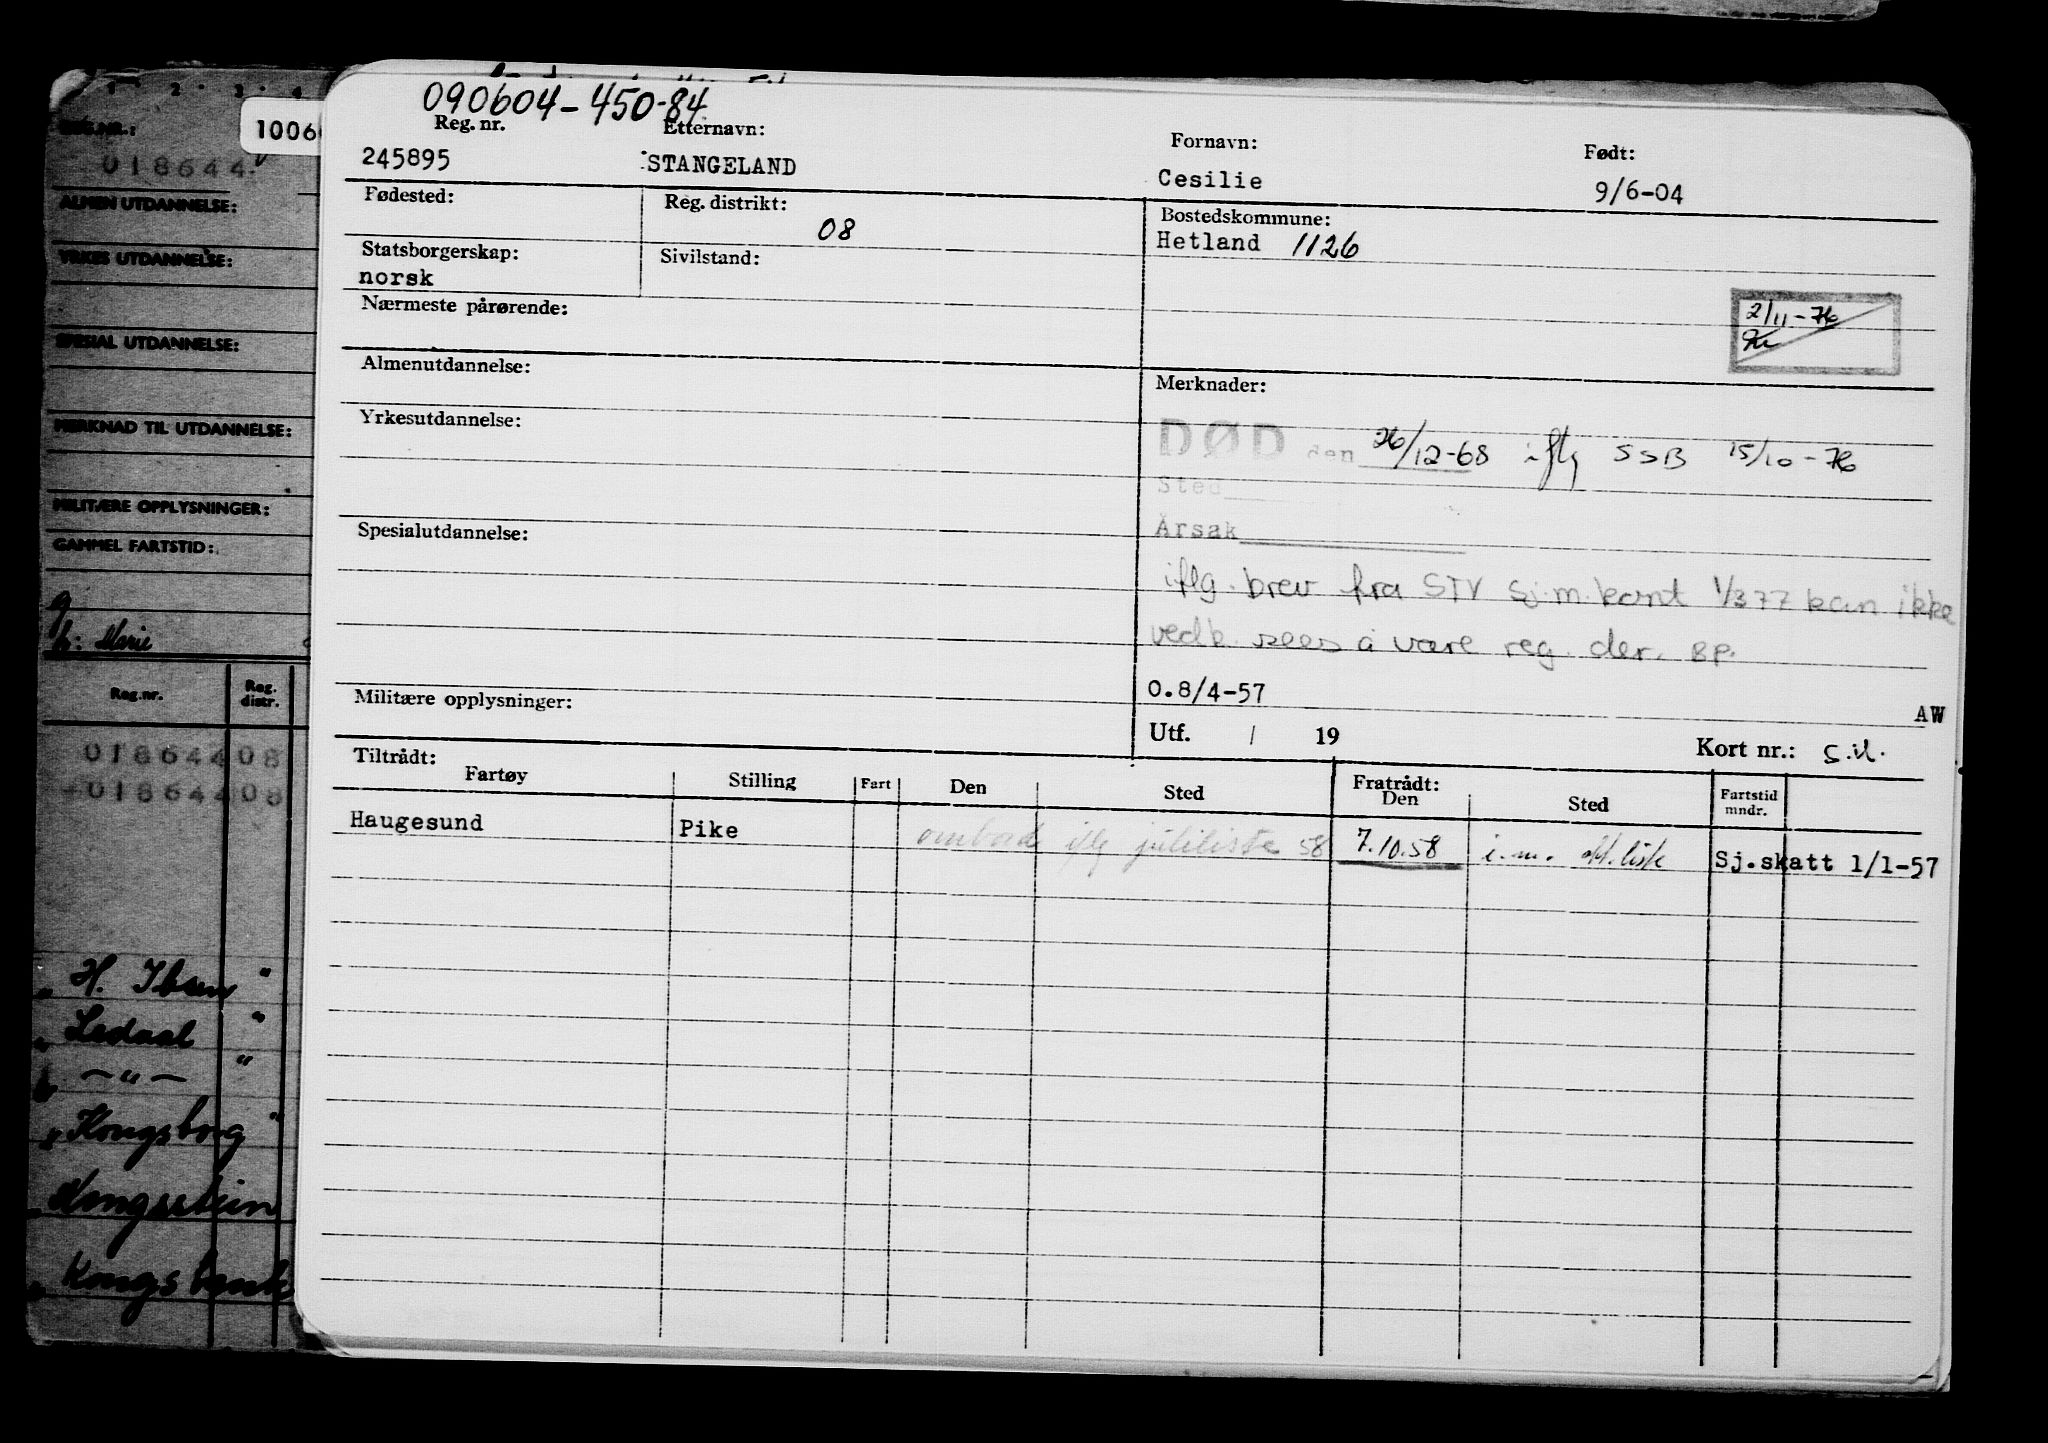 090604-450-84
Reg. nr. Etternavn: Fornavn: Født:
245895 STANGELAND Cesilie 9/6-04
Fødested: Reg. distrikt: 08 Bostedskommune:
Hetland 1126
Statsborgerskap: Sivilstand:
norsk
Nærmeste pårørende:
2/11-76
Almenutdannelse: Merknader:
Yrkesutdannelse:
DØD den 26/12-68 iflg SSB 15/10-76
Sted
Årsak
Spesialutdannelse:
iflg. brev fra STV Sj.m.kont 1/3 77 kan ikke
vedk. sees å være reg. der. BP.
0.8/4-57 AW
Militære opplysninger:
Utf. / 19 Kort nr.:
Tiltrådt: Fratrådt:
Fartøy Stilling Fart Den Sted Den Sted Fartstid mndr.
Haugesund Pike ombord iflg juliliste 58 7.10.58 i.m. okt.liste Sj.skatt 1/1-57
1 2 3 4
REG.NR.: 1006
018644
ALMEN UTDANNELSE:
YRKES UTDANNELSE:
SPESIAL UTDANNELSE:
MERKNAD TIL UTDANNELSE:
MILITÆRE OPPLYSNINGER:
GAMMEL FARTSTID:
g
h: Marie
Reg.nr. Reg. distr.
018644 08
018644 08
" H. Ibsen "
" Ledaal "
" — " — "
" Kongsborg "
" Kongsstein
" Kongsbank